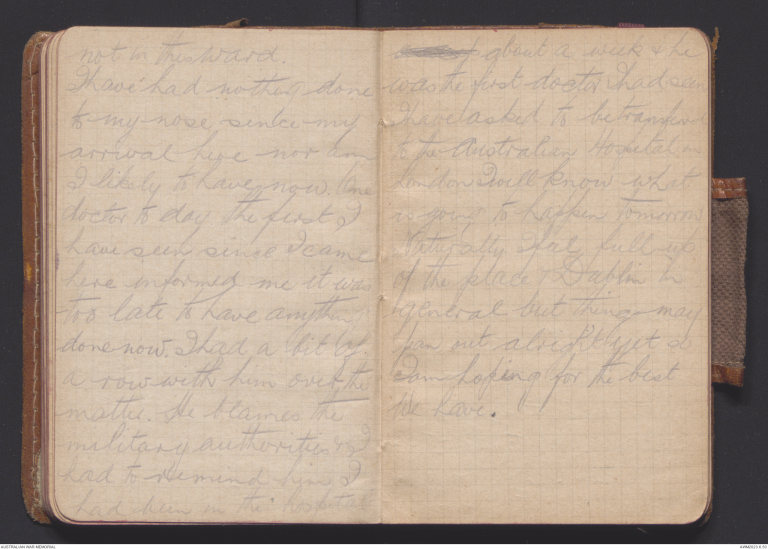 not in this ward.
I have had nothing done
to my nose sinlce my
arrival here nor am
I likely to have now. One
doctor to day the first I
have seen since I came
here informed me it was
too late to have anything
done now. I had a bit of
a row with him over the
matter. He blames the
military authorities & I
had to remind him I
had been in the hospital
about a week & he
was the first doctor I had seen
I have asked to be transferred
to the Australian Hospital in
London I will know what
is going to happen tomorrow
Naturally I feel full up
of the place & Dublin in
general but things may
pan out alright yet so
I am hoping for the best
We have.
AUSTRALIAN WAR MEMORIAL